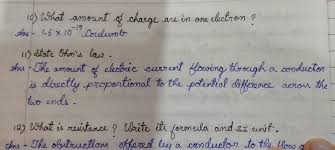 10) What amount of charge are in one electron ?
Ans - 1.6 × 10⁻¹⁹ Coulumb
11) State Ohm's law -
Ans - The amount of electric current flowing through a conductor
is directly proportional to the potential difference across the
two ends.
12) What is resistance ? Write its formula and SI unit.
Ans - The obstructions offered by a conductor to the flow